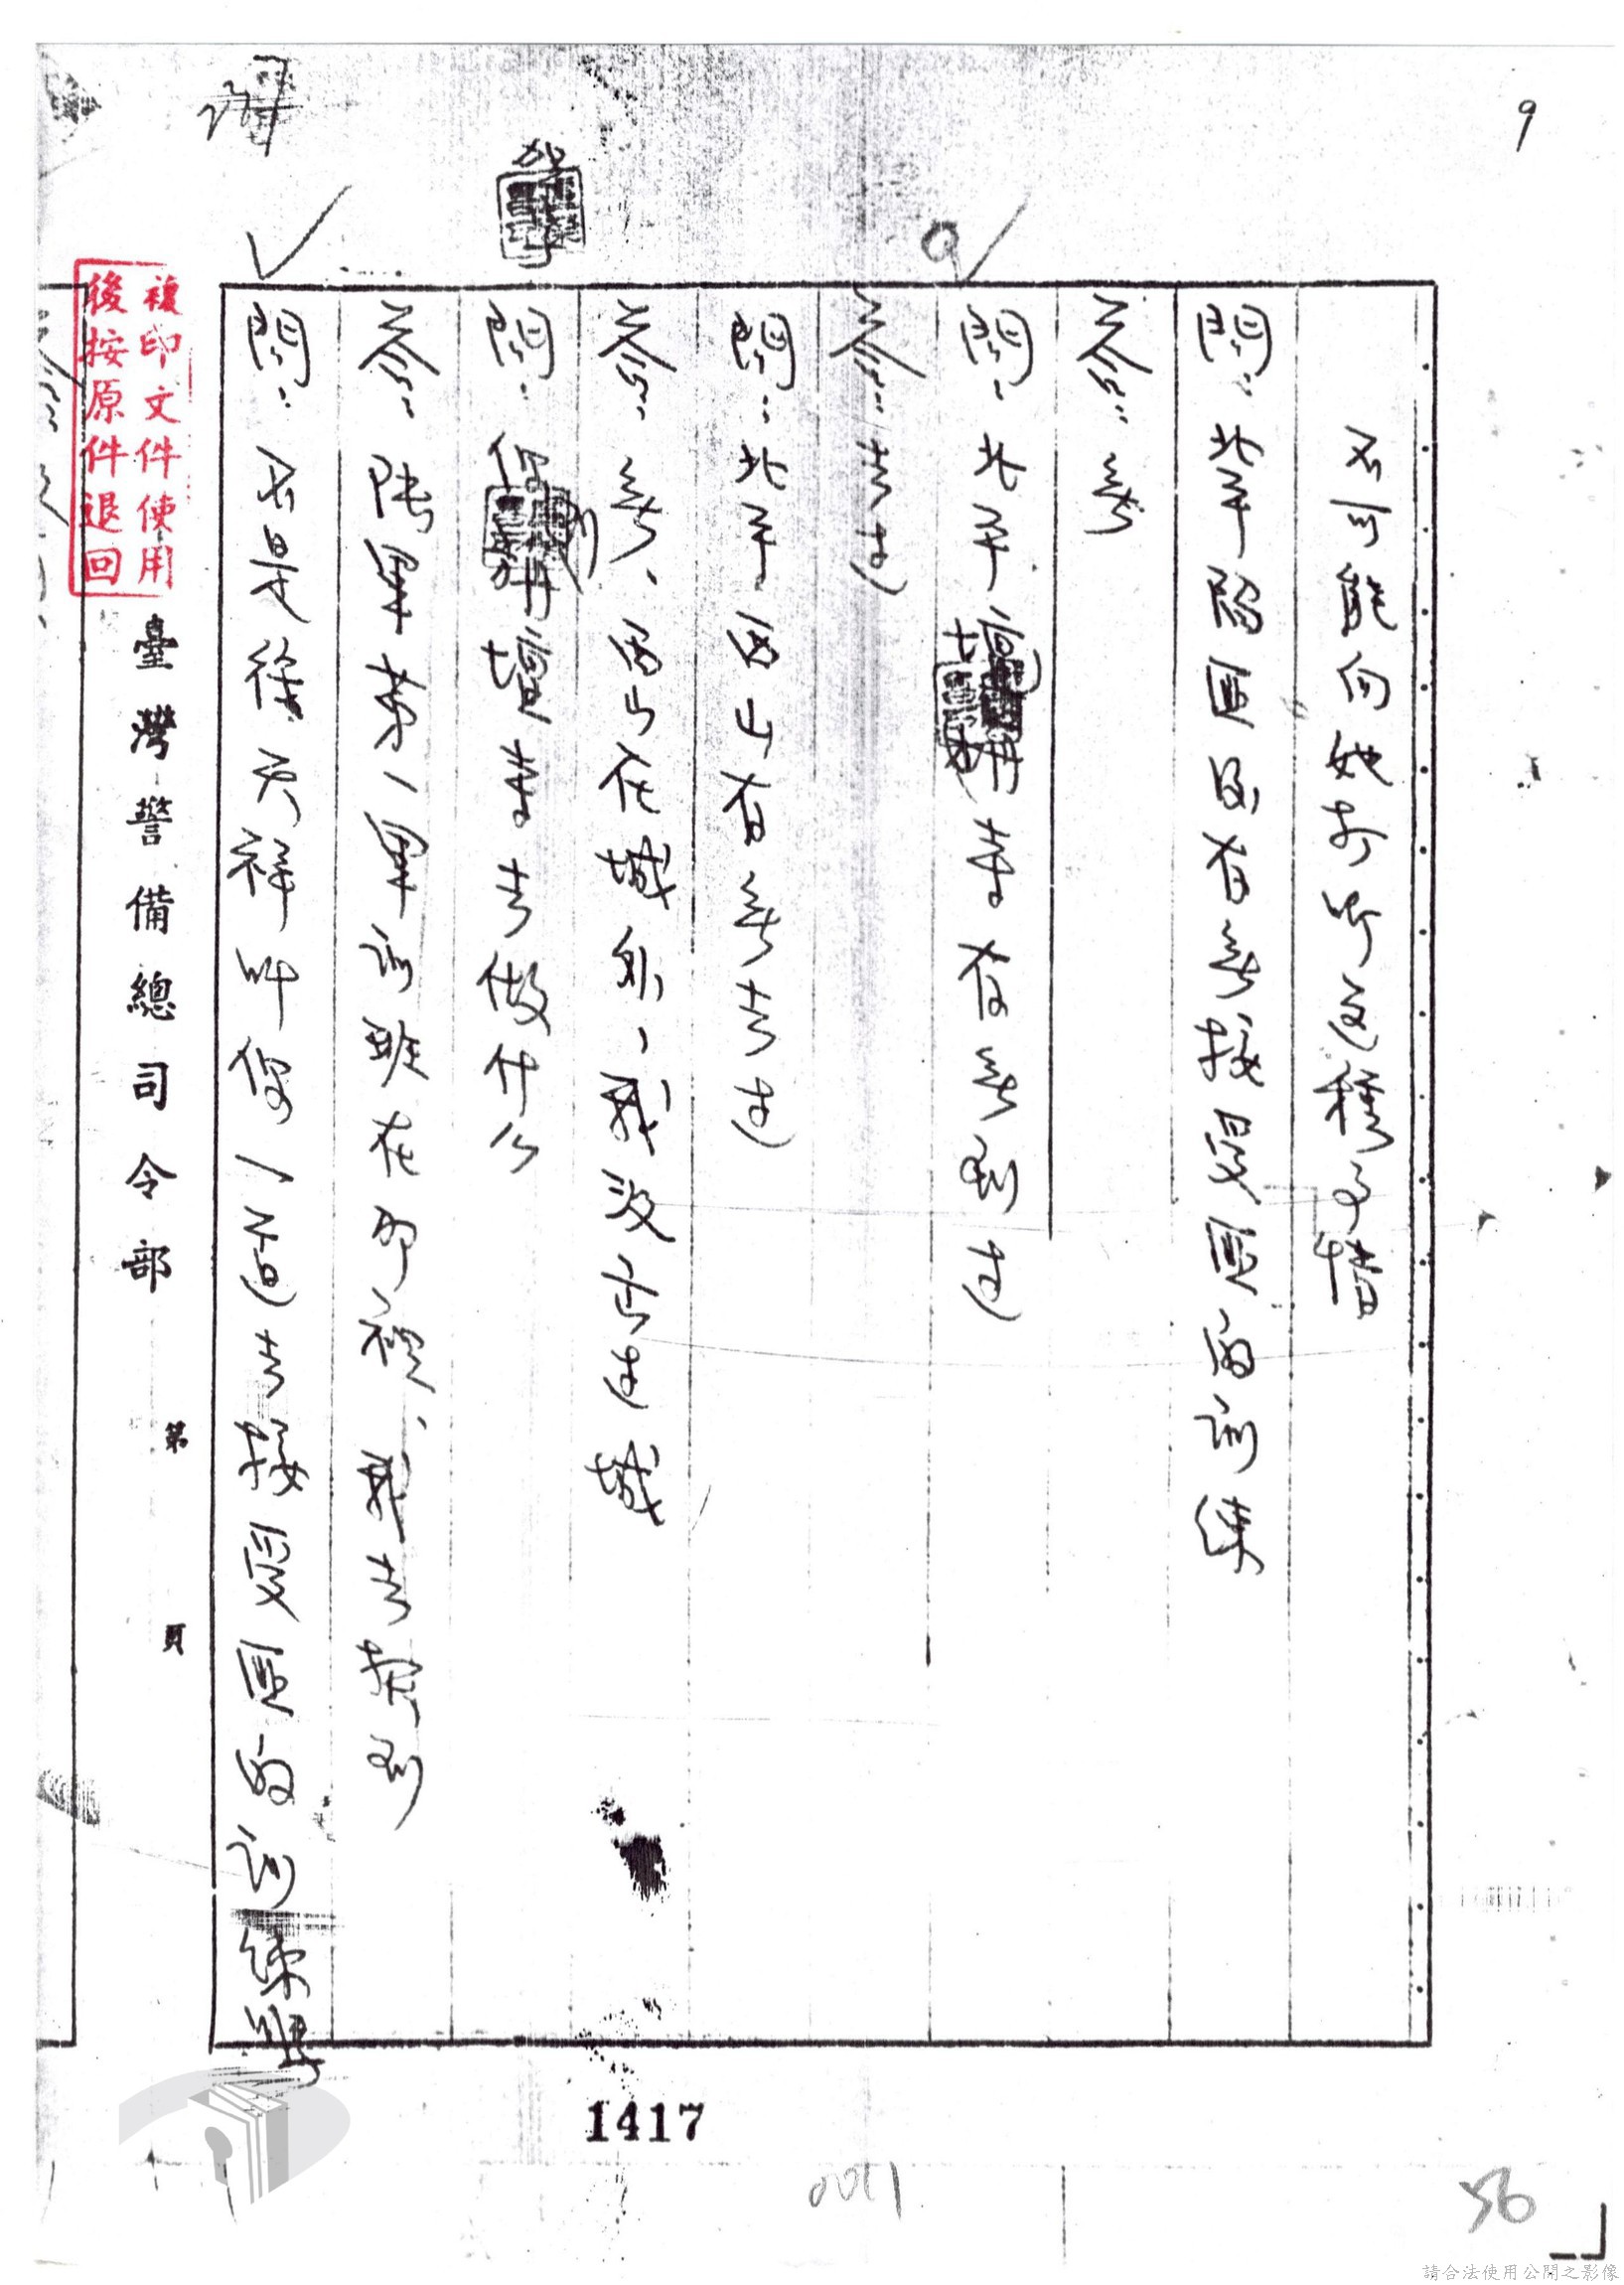 9
不可能向她打听這種事情
問：北平陷匪後有無接受匪的訓練
答：無
問：北平講堂有無到过
答：去过
問：北平西山有無去过
答：無、西山在城外、我沒有出过城
問：你到講堂去做什么
答：陸軍第一軍訓班在那裡、我去報到
問：不是徐天祥叫你一道去接受匪的訓練嗎
臺灣警備總司令部 第 頁
複印文件使用
後按原件退回
1417
0011
56
請合法使用公開之影像